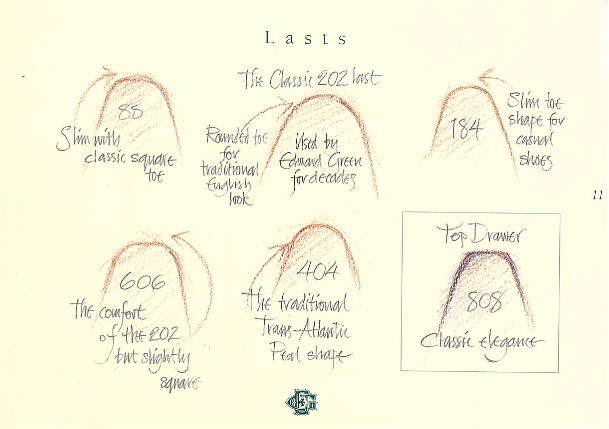 Lasts
88
Slim with
classic square
toe
The Classic 202 last
Rounded toe
for
traditional
English
look
Used by
Edward Green
for decades
184
Slim toe
shape for
casual
shoes
11
606
The comfort
of the 202
but slightly
square
404
The traditional
Trans-Atlantic
Peal shape
Top Drawer
808
Classic elegance